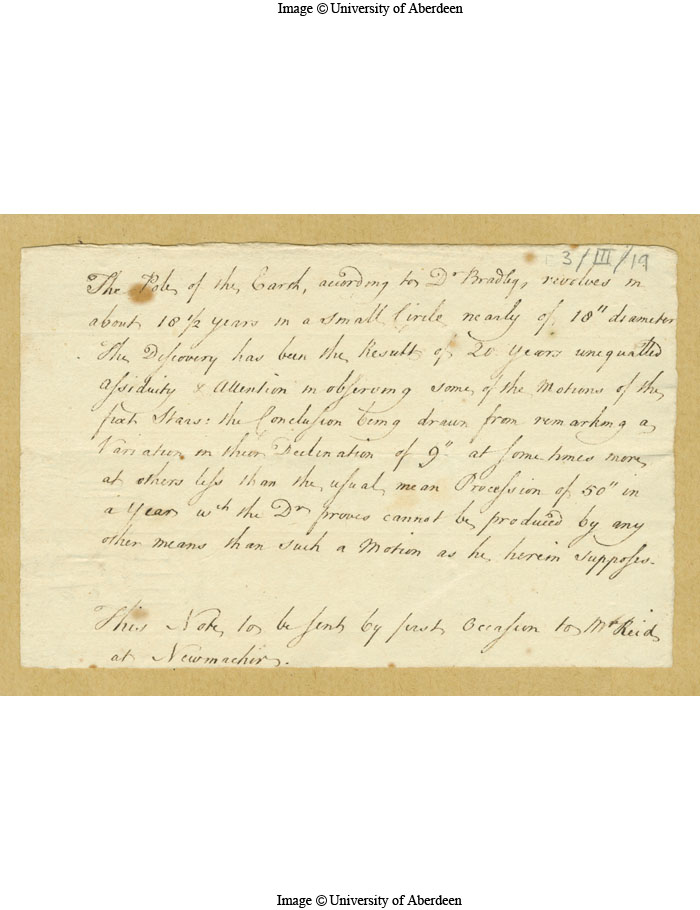 Image © University of Aberdeen
3/III/19
The Pole of the Earth, according to Dr Bradley, revolves in
about 18 1/2 years in a small Circle nearly of 18" diameter
The Discovery has been the Result of 20 Years unequalled
Assiduity & Attention in observing some of the Motions of the
fixt Stars: the Conclusion being drawn from remarking a
Variation in their Declination of 9" at some times more,
at others less than the usual mean Procession of 50" in
a Year wch the Dr proves cannot be produced by any
other means than such a Motion as he herein supposes.
This Note to be sent by first Occasion to Mr Reid
at Newmachir.
Image © University of Aberdeen